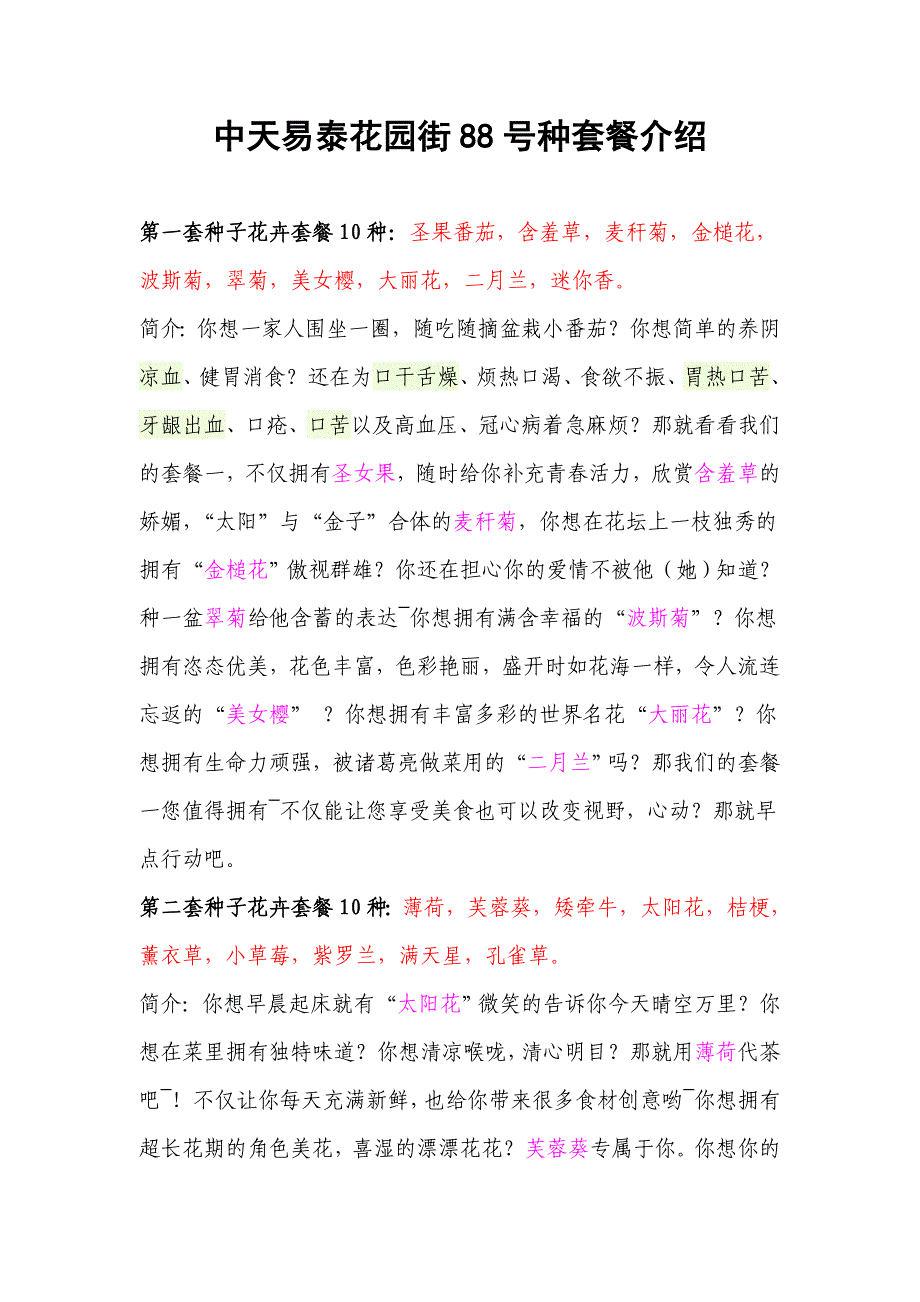 中天易泰花园街 88 号种套餐介绍
第一套种子花卉套餐 10 种：圣果番茄，含羞草，麦秆菊，金槌花，
波斯菊，翠菊，美女樱，大丽花，二月兰，迷你香。
简介：你想一家人围坐一圈，随吃随摘盆栽小番茄？你想简单的养阴
凉血、健胃消食？还在为口干舌燥、烦热口渴、食欲不振、胃热口苦、
牙龈出血、口疮、口苦以及高血压、冠心病着急麻烦？那就看看我们
的套餐一，不仅拥有圣女果，随时给你补充青春活力，欣赏含羞草的
娇媚，“太阳”与“金子”合体的麦秆菊，你想在花坛上一枝独秀的
拥有“金槌花”傲视群雄？你还在担心你的爱情不被他（她）知道？
种一盆翠菊给他含蓄的表达¯你想拥有满含幸福的“波斯菊”？你想
拥有恣态优美，花色丰富，色彩艳丽，盛开时如花海一样，令人流连
忘返的“美女樱” ？你想拥有丰富多彩的世界名花“大丽花”？你
想拥有生命力顽强，被诸葛亮做菜用的“二月兰”吗？那我们的套餐
一您值得拥有¯不仅能让您享受美食也可以改变视野，心动？那就早
点行动吧。
第二套种子花卉套餐 10 种：薄荷，芙蓉葵，矮牵牛，太阳花，桔梗，
薰衣草，小草莓，紫罗兰，满天星，孔雀草。
简介：你想早晨起床就有“太阳花”微笑的告诉你今天晴空万里？你
想在菜里拥有独特味道？你想清凉喉咙，清心明目？那就用薄荷代茶
吧¯！不仅让你每天充满新鲜，也给你带来很多食材创意哟¯你想拥有
超长花期的角色美花，喜湿的漂漂花花？芙蓉葵专属于你。你想你的